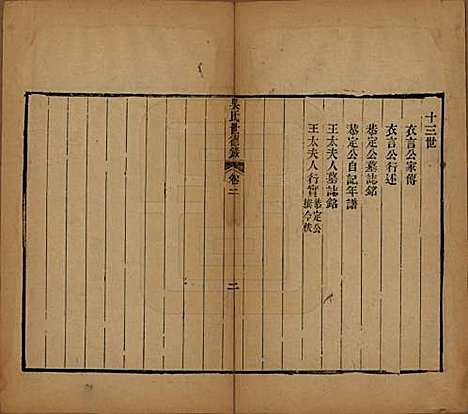 十三世
衣言公家傳
衣言公行述
恭定公墓誌銘
恭定公自記年譜
王太夫人墓誌銘
王太夫人行實 恭定公
吳氏世德錄 卷二 二